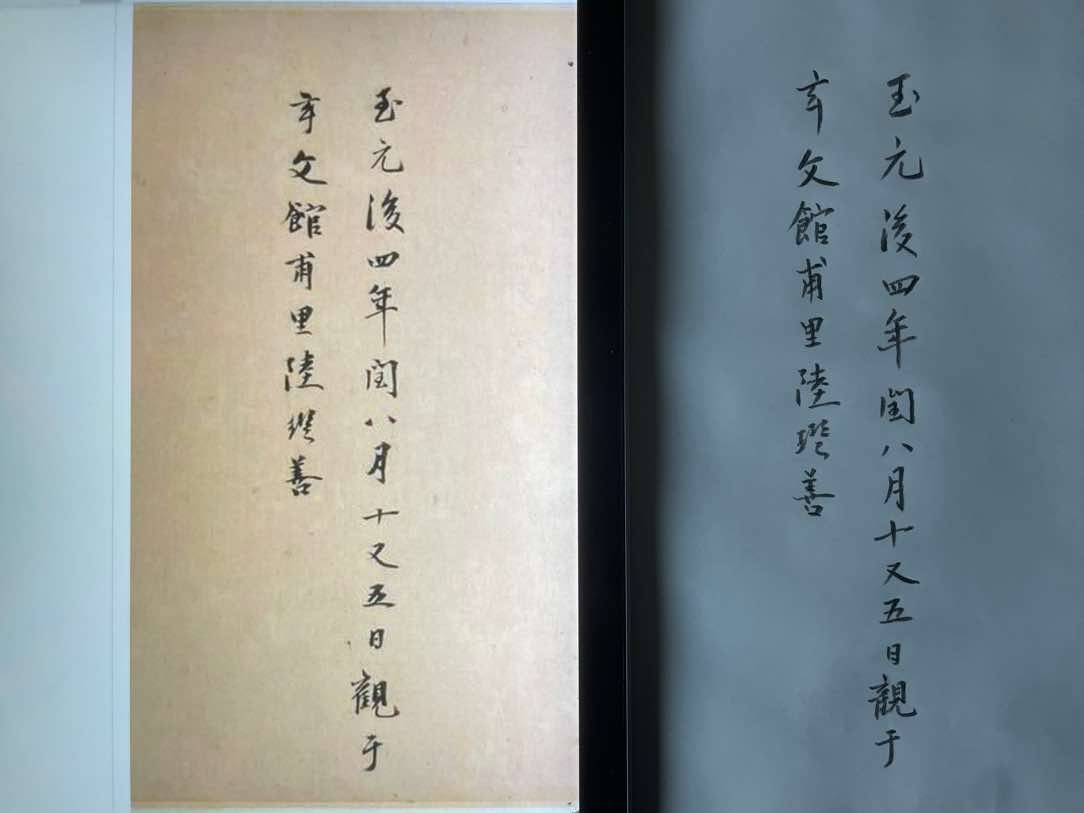 至元後四年閏八月十又五日觀于
玄文館甫里陸繼善
至元後四年閏八月十又五日觀于
玄文館甫里陸繼善